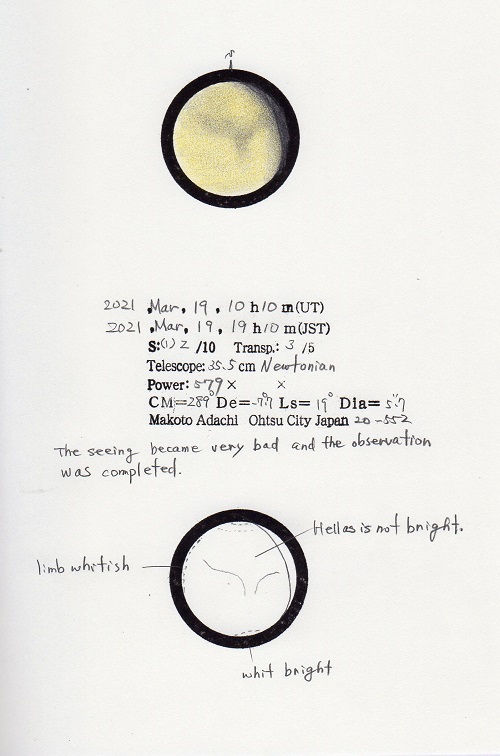 N
2021 ,Mar, 19 , 10 h 10 m(UT)
2021 ,Mar, 19 , 19 h 10 m(JST)
S:(1) 2 /10 Transp.: 3 /5
Telescope: 35.5 cm Newtonian
Power: 579 × ×
CM=289° De=-7.°7 Ls= 19° Dia= 5."7
Makoto Adachi Ohtsu City Japan 20-552
The seeing became very bad and the observation
was completed.
Hellas is not bright.
limb whitish
whit bright